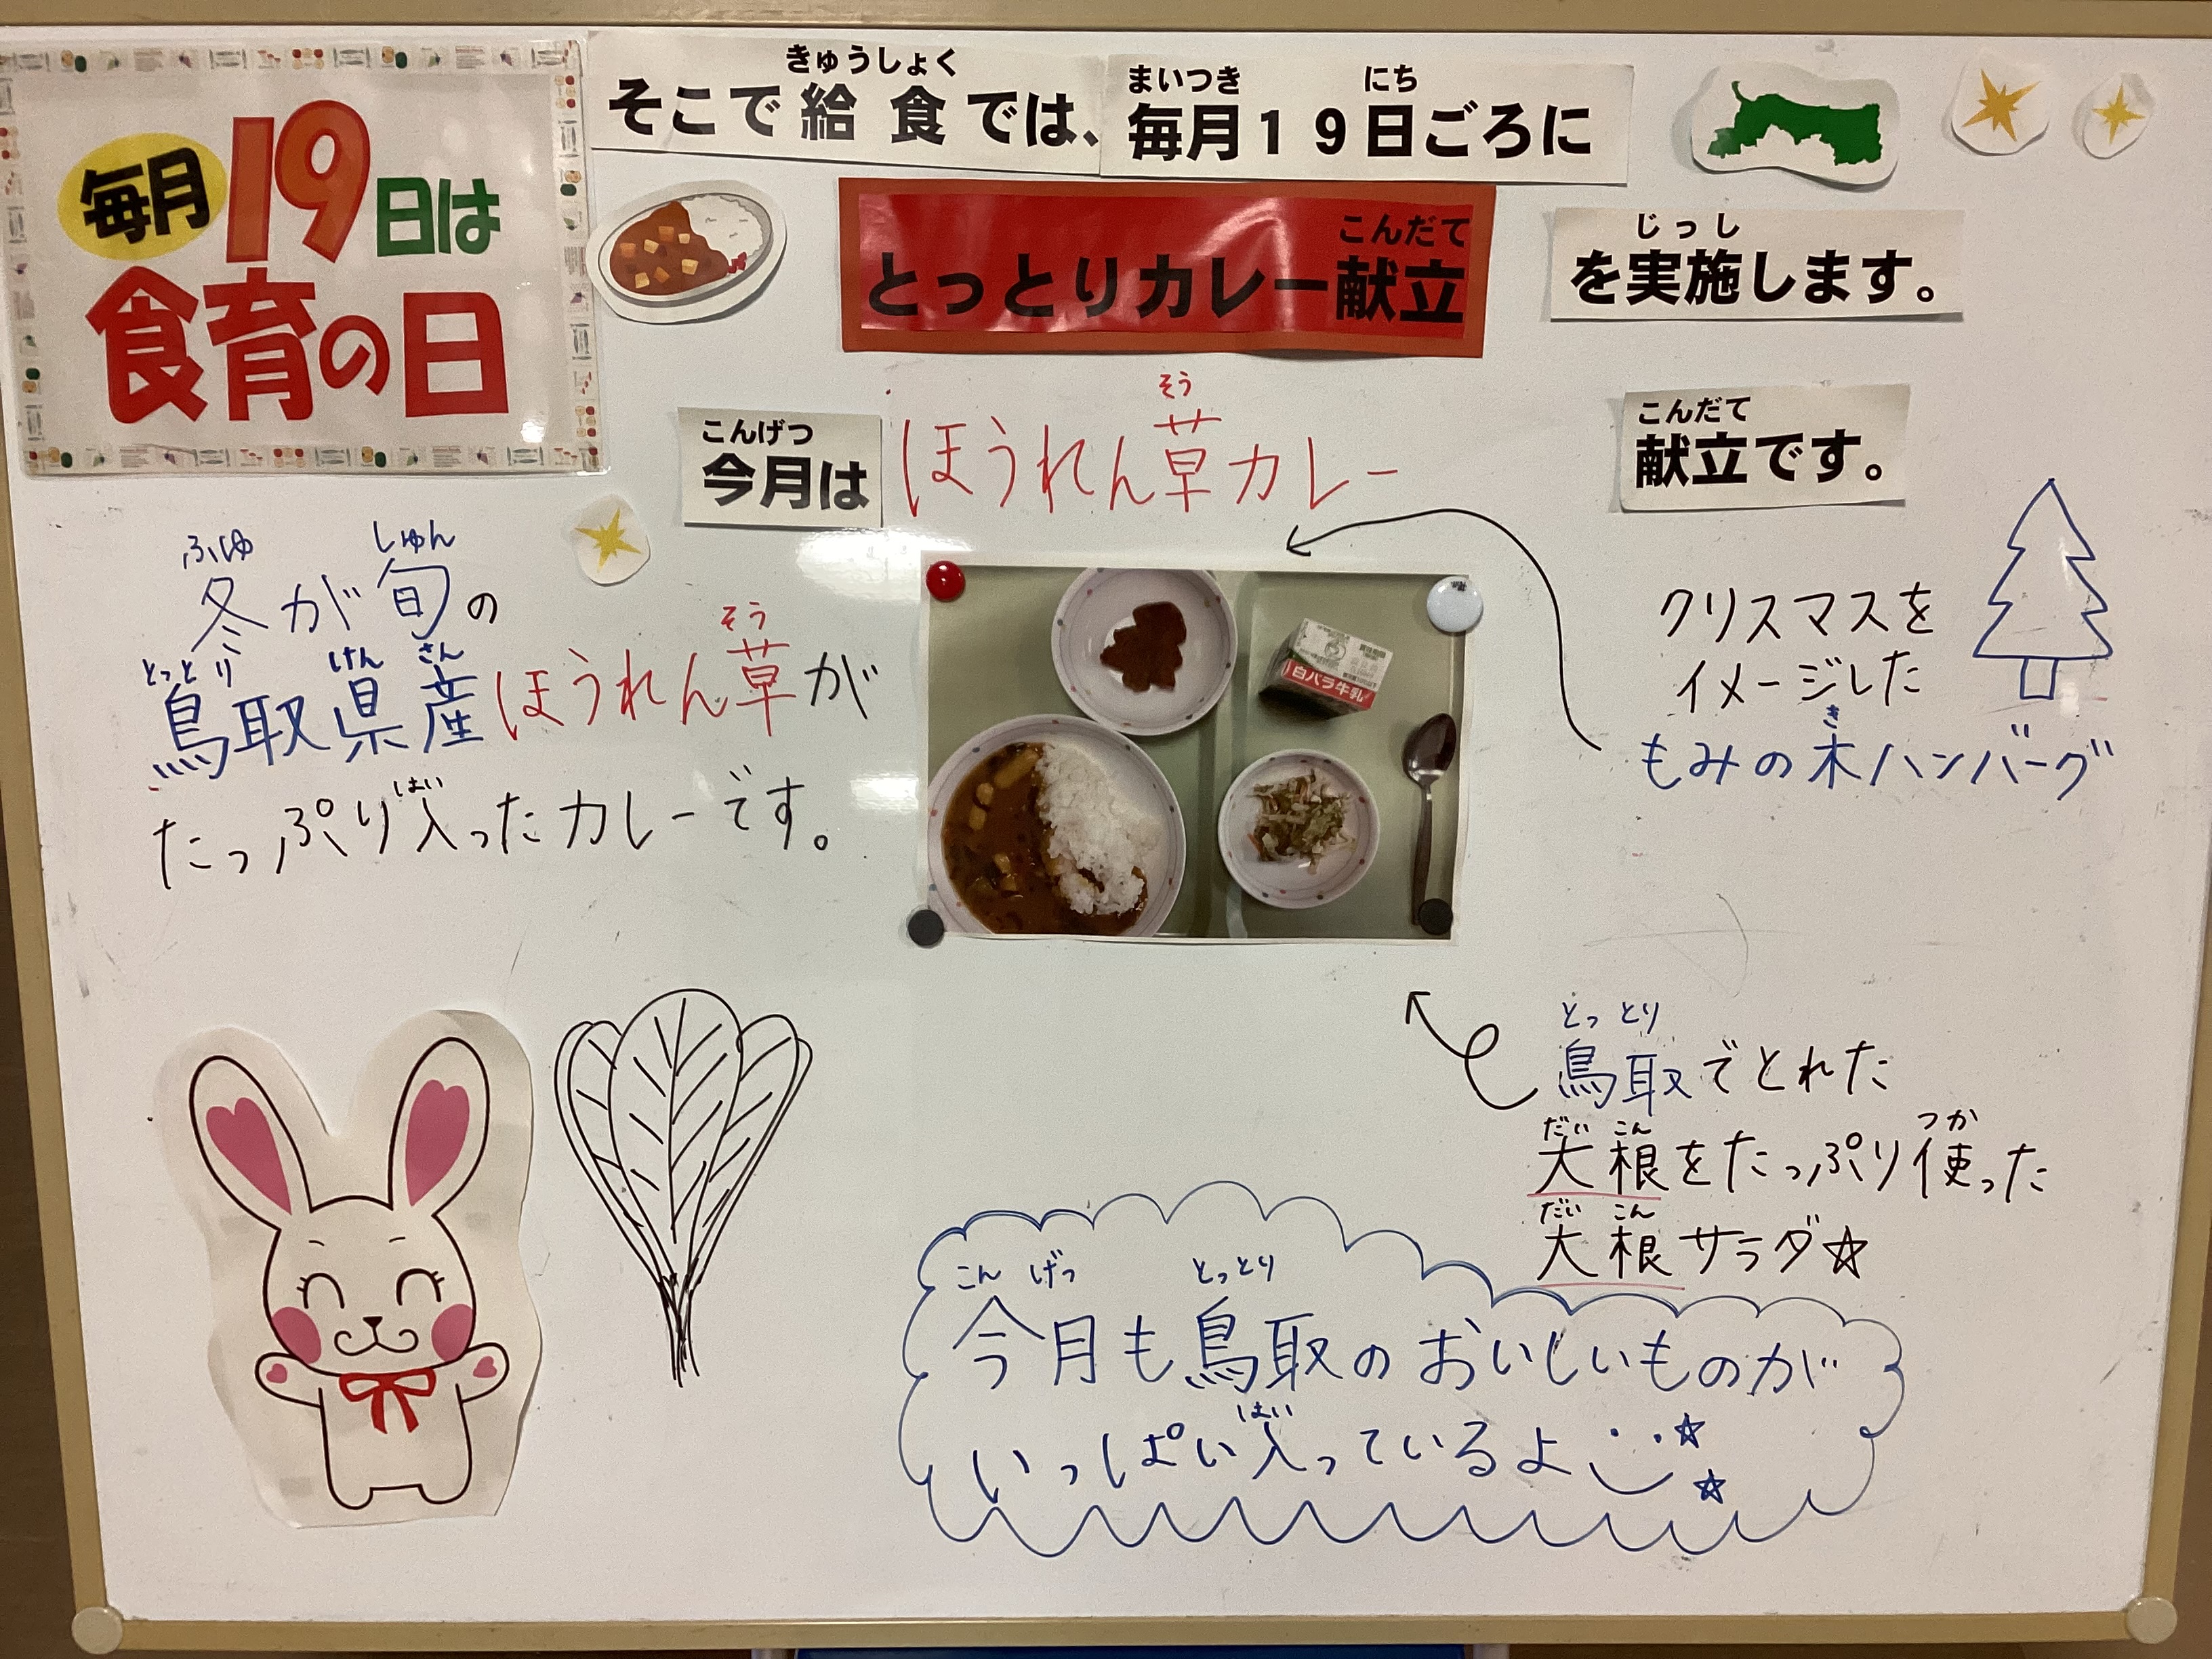 毎月19日は
食育の日
きゅうしょく
そこで給食では、
まいつき にち
毎月19日ごろに
こんだて
とっとりカレー献立
じっし
を実施します。
こんげつ
今月は
そう
ほうれん草カレー
こんだて
献立です。
ふゆ しゅん
冬が旬の
とっとり けん さん そう
鳥取県産ほうれん草が
はい
たっぷり入ったカレーです。
白バラ牛乳
クリスマスを
イメージした
き
もみの木ハンバーグ
とっとり
鳥取でとれた
だい こん つか
大根をたっぷり使った
だい こん
大根サラダ☆
こん げつ とっとり
今月も鳥取のおいしいものが
はい
いっぱい入っているよ